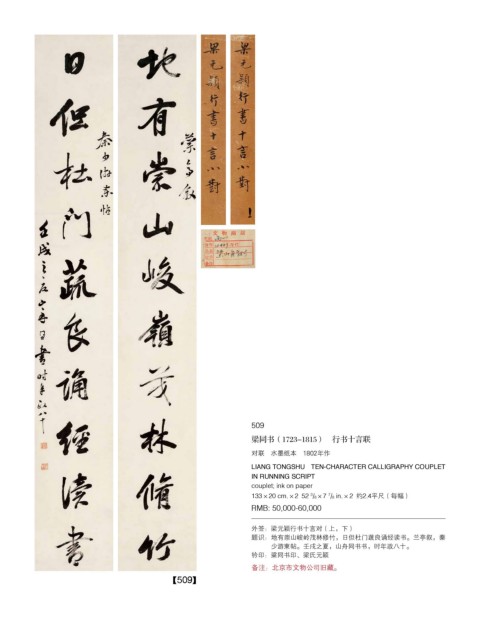 地有崇山峻嶺茂林脩竹
蘭亭敘
日但杜門蔬食誦經讀書
秦少游東帖
壬戌之夏山舟同書時年政八十
梁元穎行書十言小對
梁元穎行書十言小對
【509】
509
梁同书（1723-1815） 行书十言联
对联 水墨纸本 1802年作
LIANG TONGSHU TEN-CHARACTER CALLIGRAPHY COUPLET
IN RUNNING SCRIPT
couplet; ink on paper
133×20 cm. ×2 52 3/8×7 7/8 in. ×2 约2.4平尺（每幅）
RMB: 50,000-60,000
外签：梁元颖行书十言对（上、下）
题识：地有崇山峻岭茂林修竹，日但杜门蔬食诵经读书。兰亭叙，秦
少游东帖。壬戌之夏，山舟同书书，时年政八十。
钤印：梁同书印、梁氏元颖
备注：北京市文物公司旧藏。